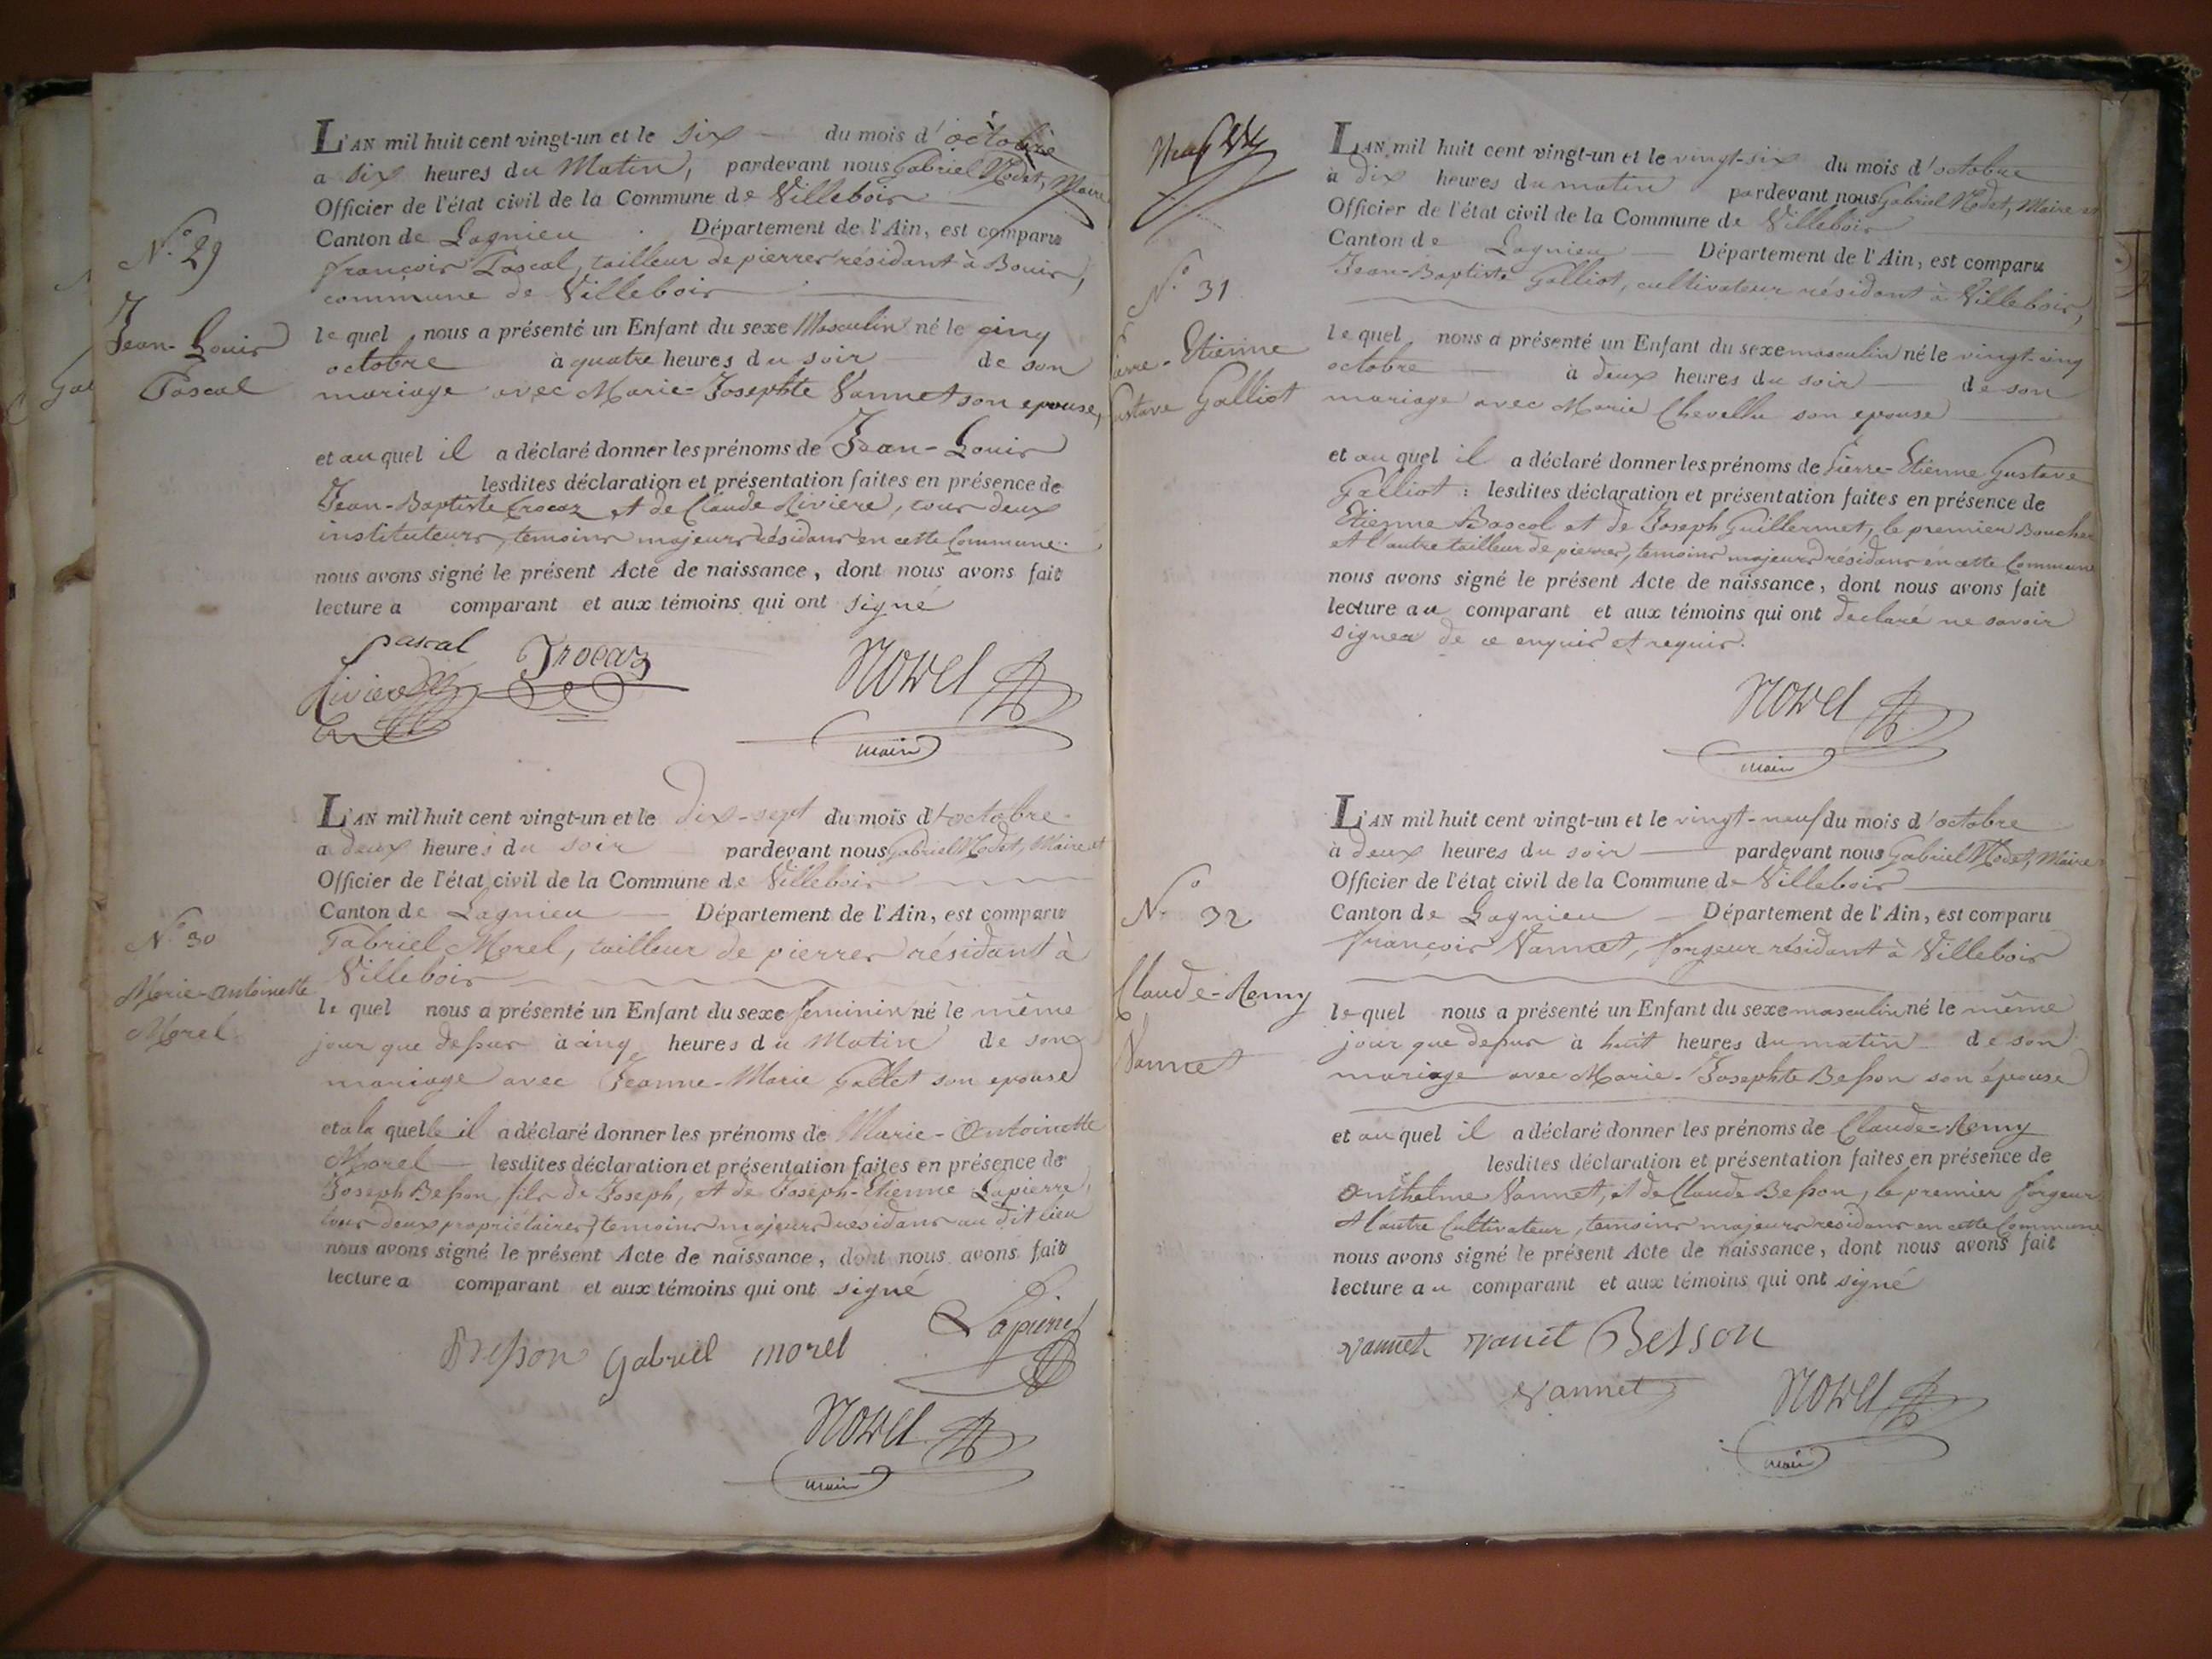 L'AN mil huit cent vingt-un et le six du mois d'octobre
a six heures du Matin, pardevant nous Gabriel Nodet, Maire
Officier de l'état civil de la Commune de Villebois
Canton de Lagnieu Département de l'Ain, est comparu
françois Pascal, tailleur de pierres résidant à Bouis,
commune de Villebois
N.o 29
Jean-Louis
Pascal
le quel nous a présenté un Enfant du sexe Masculin né le cinq
octobre à quatre heures du soir de son
mariage avec Marie-Josephte Vannet son epouse,
et au quel il a déclaré donner les prénoms de Jean-Louis
lesdites déclaration et présentation faites en présence de
Jean-Baptiste Trocaz et de Claude Riviere, tous deux
instituteurs, temoins majeurs résidans en cette Commune
nous avons signé le présent Acte de naissance, dont nous avons fait
lecture a comparant et aux témoins qui ont signé
pascal Trocaz
Riviere
maire
L'AN mil huit cent vingt-un et le dix-sept du mois d'octobre
a deux heures du soir pardevant nous Gabriel Nodet, Maire et
Officier de l'état civil de la Commune de Villebois
Canton de Lagnieu Département de l'Ain, est comparu
Gabriel Morel, tailleur de pierres résidant à
Villebois
N.o 30
Marie-Antoinette
Morel
le quel nous a présenté un Enfant du sexe feminin né le même
jour que dessus à cinq heures du Matin de son
mariage avec Jeanne-Marie Gallet son epouse
et à la quelle il a déclaré donner les prénoms de Marie-Antoinette
Morel lesdites déclaration et présentation faites en présence de
Joseph Besson, fils de Joseph, et de Joseph-Etienne Lapierre,
tous deux propriétaires, temoins majeurs résidans au dit lieu
nous avons signé le présent Acte de naissance, dont nous avons fait
lecture a comparant et aux témoins qui ont signé
Besson Gabriel morel Lapierre
maire
L'AN mil huit cent vingt-un et le vingt-six du mois d'octobre
à dix heures du matin pardevant nous Gabriel Nodet, Maire et
Officier de l'état civil de la Commune de Villebois
Canton de Lagnieu Département de l'Ain, est comparu
Jean-Baptiste Galliot, cultivateur résidant à Villebois,
N.o 31
Etienne
Gustave Galliot
le quel nous a présenté un Enfant du sexe masculin né le vingt-cinq
octobre à deux heures du soir de son
mariage avec Marie Chevellu son epouse
et au quel il a déclaré donner les prénoms de Pierre-Etienne Gustave
Galliot : lesdites déclaration et présentation faites en présence de
Etienne Bascol et de Joseph Guillermet, le premier Boucher
et l'autre tailleur de pierres, temoins majeurs résidans en cette Commune
nous avons signé le présent Acte de naissance, dont nous avons fait
lecture au comparant et aux témoins qui ont declaré ne savoir
signer de ce enquis et requis.
maire
L'AN mil huit cent vingt-un et le vingt-neuf du mois d'octobre
à deux heures du soir pardevant nous Gabriel Nodet, Maire
Officier de l'état civil de la Commune de Villebois
Canton de Lagnieu Département de l'Ain, est comparu
françois Vannet, forgeur résidant à Villebois
N.o 32
Claude-Remy
Vannet
le quel nous a présenté un Enfant du sexe masculin né le même
jour que dessus à huit heures du matin de son
mariage avec Marie-Josephte Besson son épouse
et au quel il a déclaré donner les prénoms de Claude-Remy
lesdites déclaration et présentation faites en présence de
Anthelme Vannet, et de Claude Besson, le premier forgeur
et l'autre Cultivateur, temoins majeurs residans en cette Commune
nous avons signé le présent Acte de naissance, dont nous avons fait
lecture au comparant et aux témoins qui ont signé
vannet Besson
vannet
maire